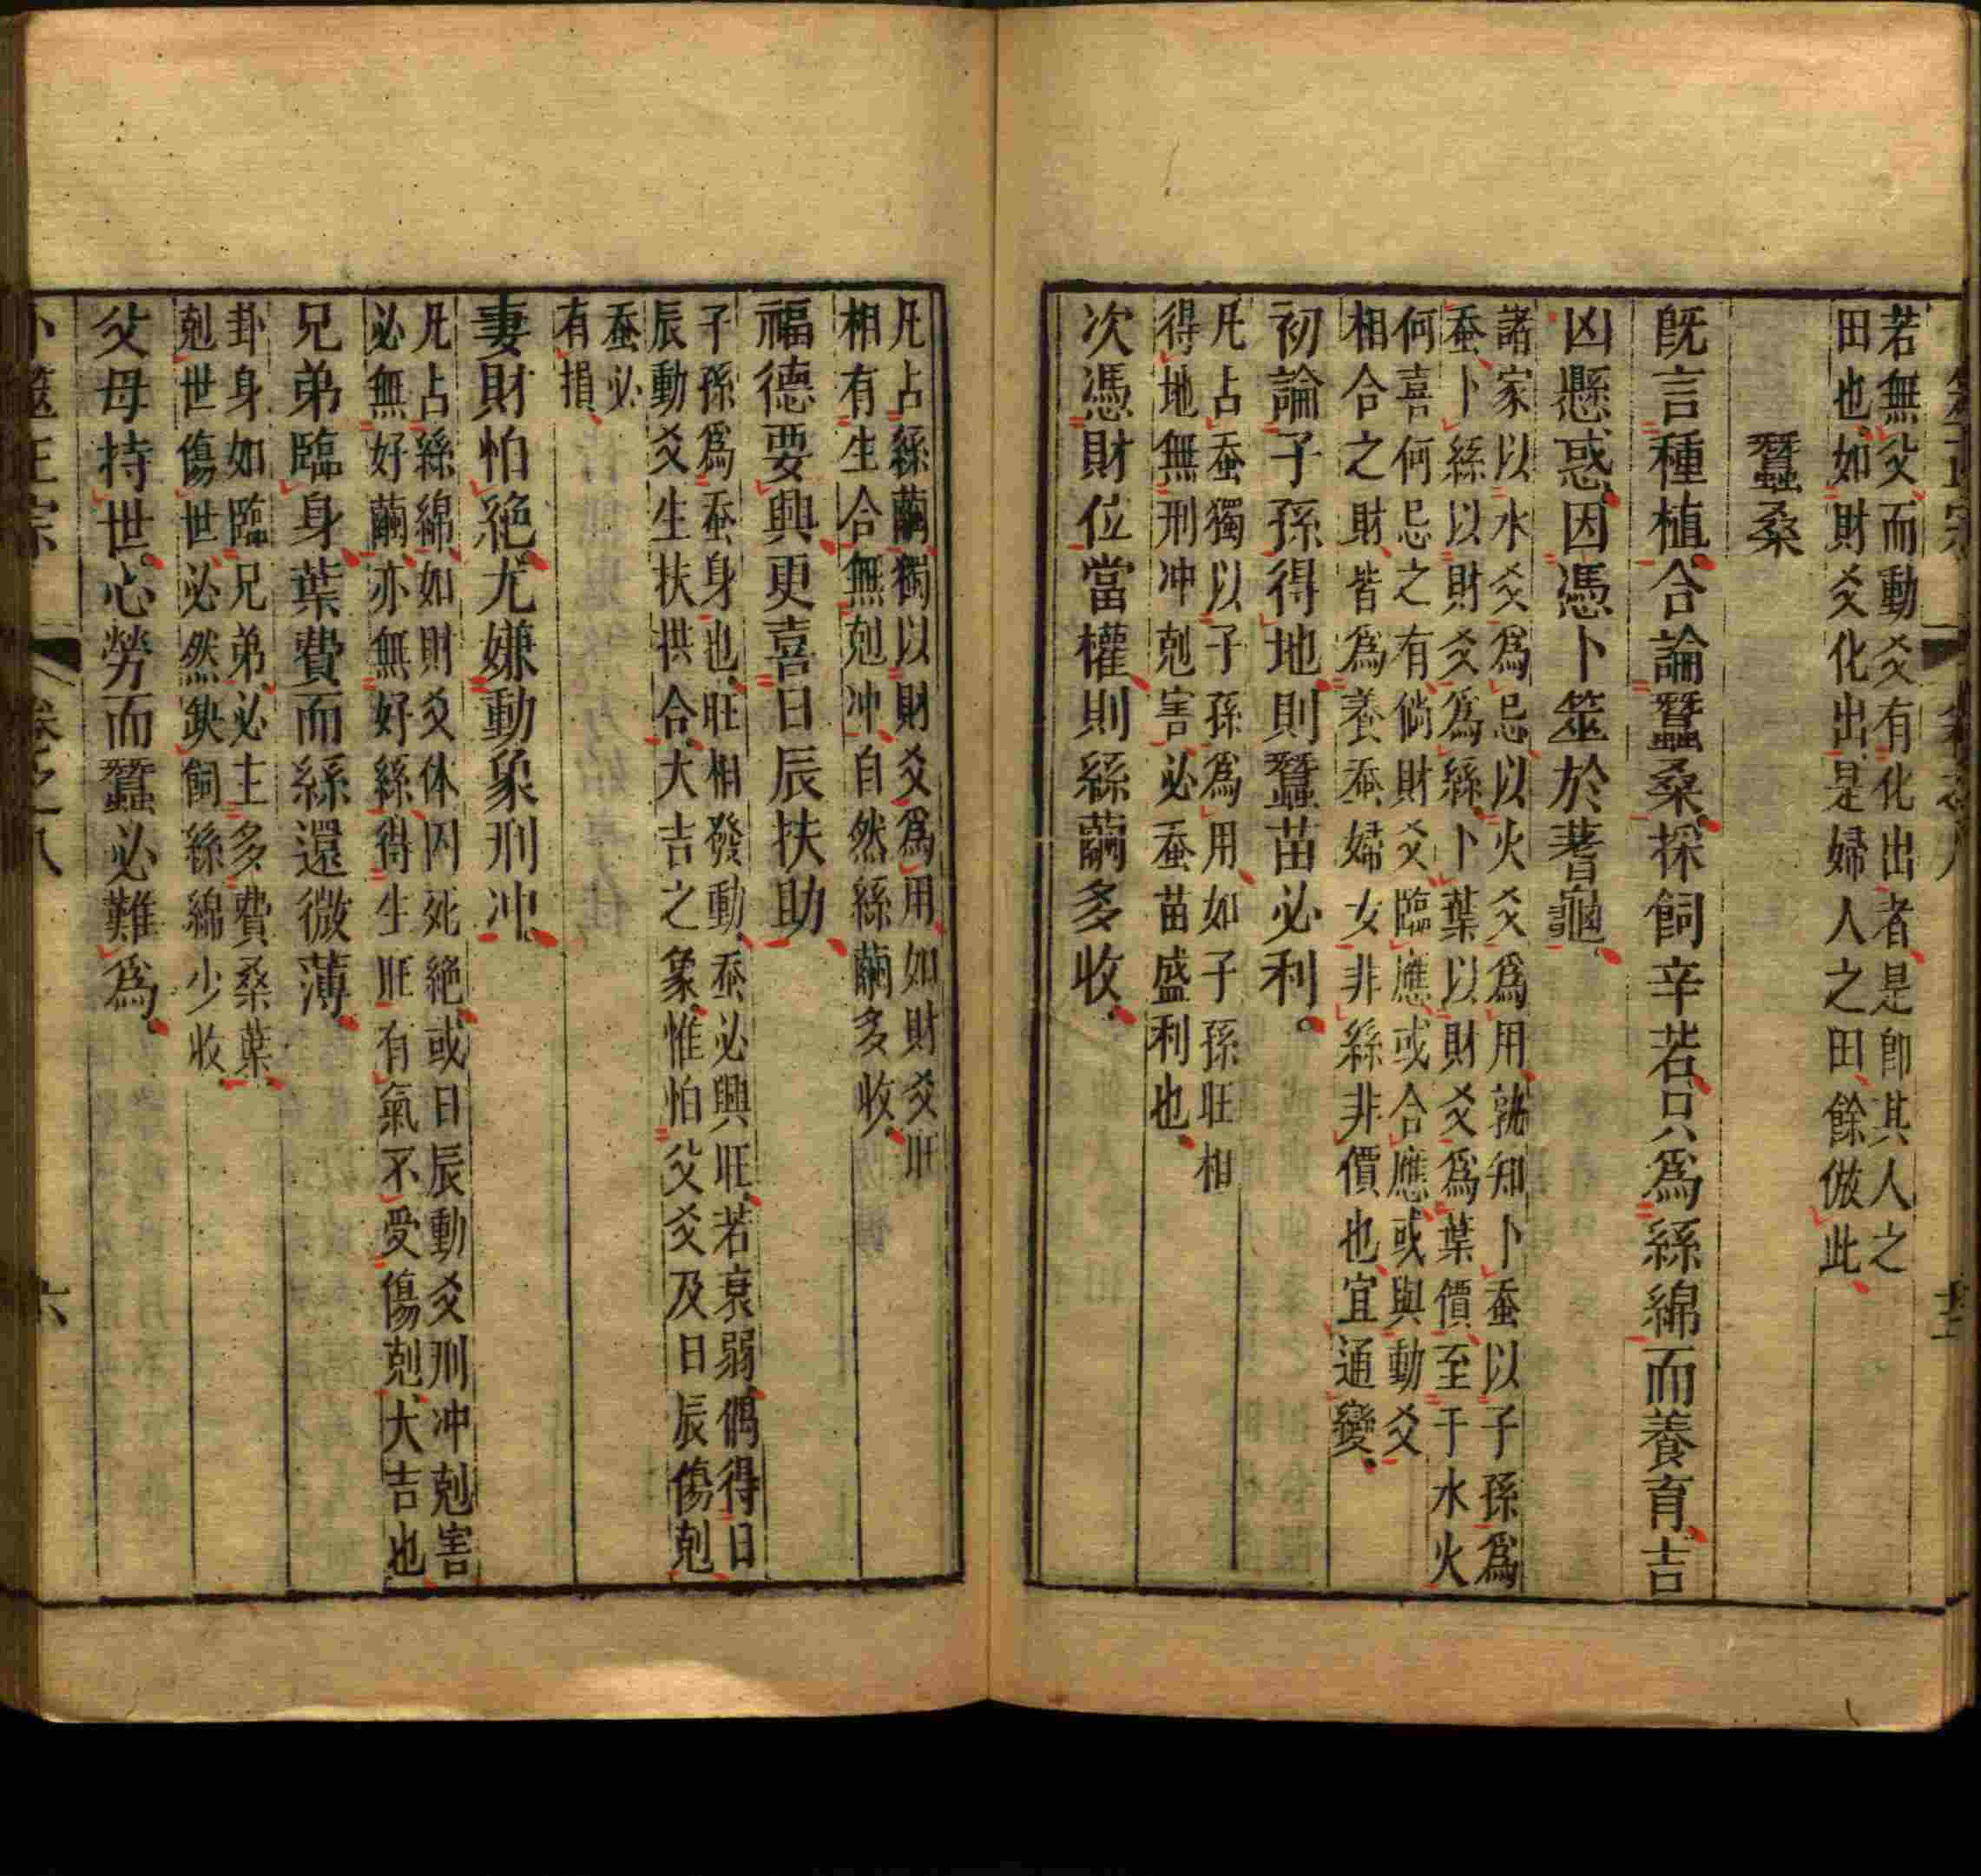 若無父而動爻有化出者是卽其人之
田也如財爻化出是婦人之田餘倣此
蠶桑
旣言種植合論蠶桑採飼辛苦只爲絲綿而養育吉
凶懸惑因憑卜筮於蓍龜
諸家以水爻爲忌以火爻爲用孰知卜蚕以子孫爲
蚕卜絲以財爻爲絲卜葉以財爻爲葉價至于水火
何喜何忌之有倘財爻臨應或合應或與動爻
相合之財皆爲養蚕婦女非絲非價也宜通變
初論子孫得地則蠶苗必利
凡占蚕獨以子孫爲用如子孫旺相
得地無刑冲剋害必蚕苗盛利也
次憑財位當權則絲繭多收
凡占絲繭獨以財爻爲用如財爻旺
相有生合無剋冲自然絲繭多收
福德要興更喜日辰扶助
子孫爲蚕身也旺相發動蚕必興旺若衰弱偶得日
辰動爻生扶拱合大吉之象惟怕父爻及日辰傷剋
蚕必
有損
妻財怕絕尤嫌動象刑冲
凡占絲綿如財爻休囚死絕或日辰動爻刑冲剋害
必無好繭亦無好絲得生旺有氣不受傷剋大吉也
兄弟臨身葉費而絲還微薄
卦身如臨兄弟必主多費桑葉
剋世傷世必然缺飼絲綿少收
父母持世心勞而蠶必難爲
卜筮正宗
卷之八
六